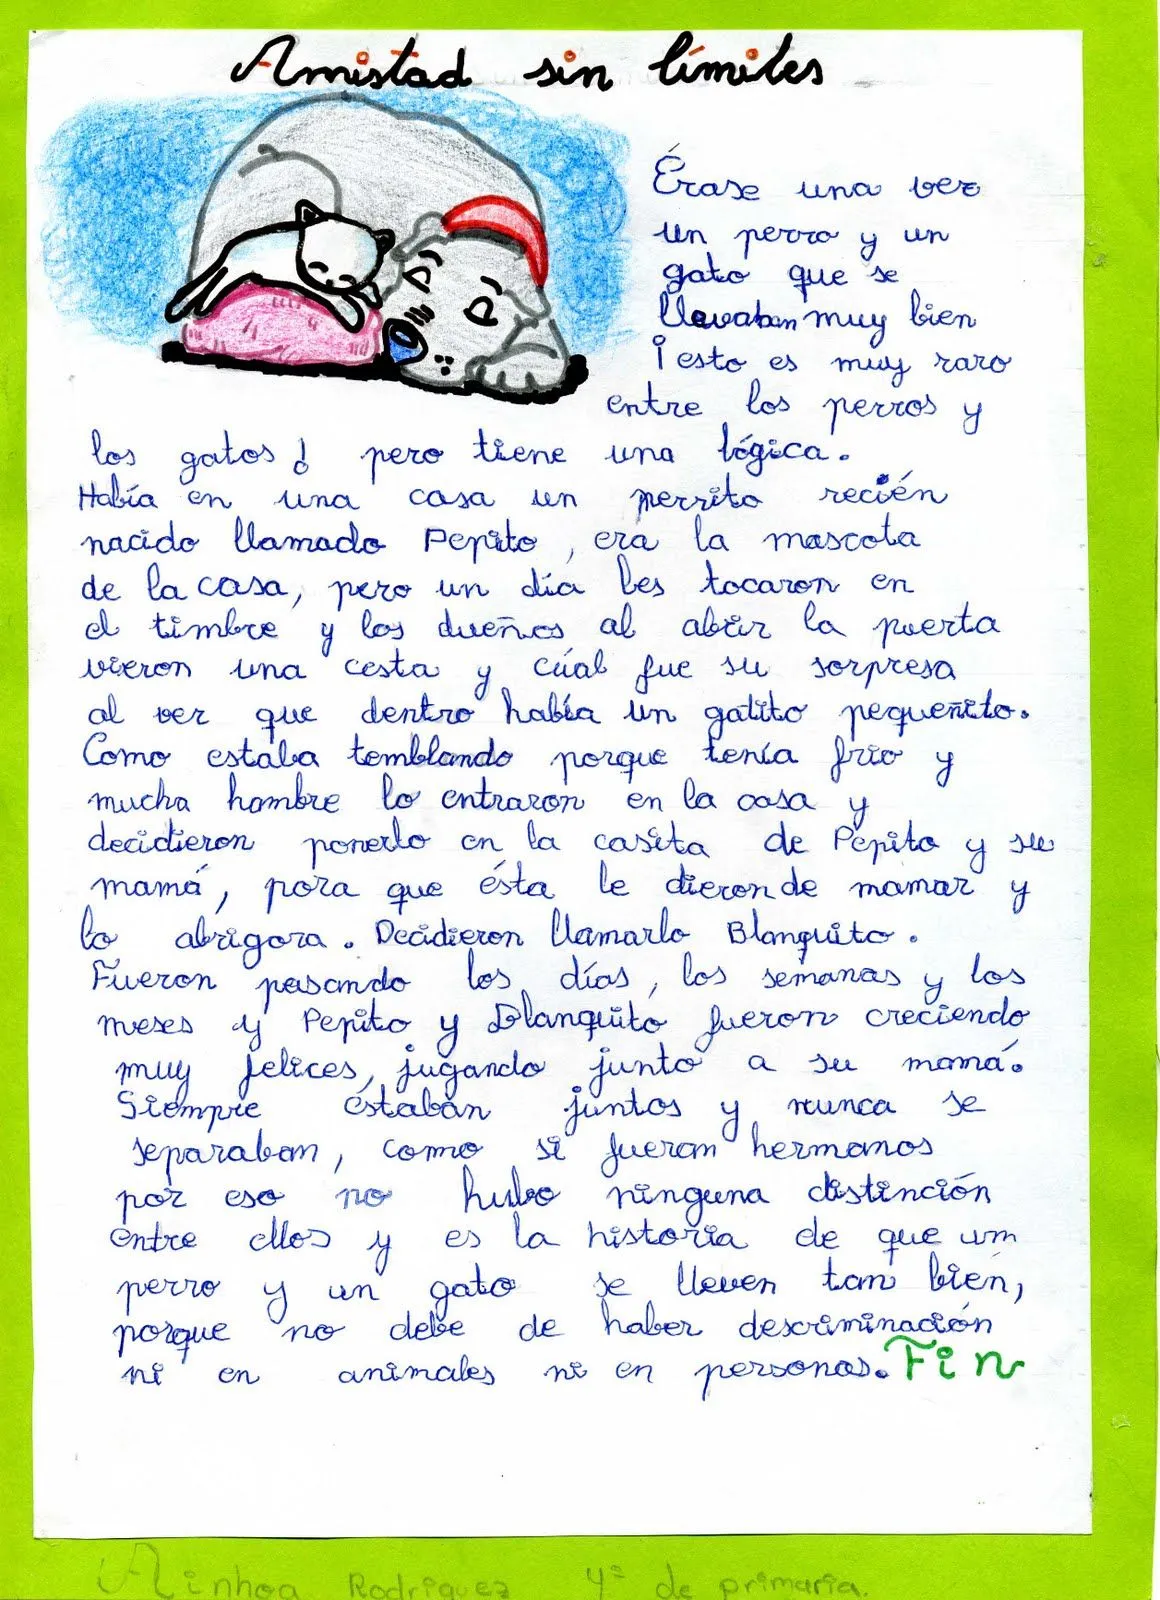 Amistad sin límites
Érase una vez
un perro y un
gato que se
llevaban muy bien
¡esto es muy raro
entre los perros y
los gatos! pero tiene una lógica.
Había en una casa un perrito recién
nacido llamado Pepito, era la mascota
de la casa, pero un día les tocaron en
el timbre y los dueños al abrir la puerta
vieron una cesta y cúal fue su sorpresa
al ver que dentro había un gatito pequeñito.
Como estaba temblando porque tenía frio y
mucha hambre lo entraron en la casa y
decidieron ponerlo en la casita de Pepito y su
mamá, para que ésta le dieron de mamar y
lo abrigara. Decidieron llamarlo Blanquito.
Fueron pasando los días, las semanas y los
meses y Pepito y Blanquito fueron creciendo
muy felices, jugando junto a su mamá.
Siempre estaban juntos y nunca se
separaban, como si fueran hermanos
por eso no hubo ninguna distinción
entre ellos y es la historia de que um
perro y un gato se lleven tan bien,
porque no debe de haber descriminación
ni en animales ni en personas. Fin
Ainhoa Rodriguez 4º de primaria.